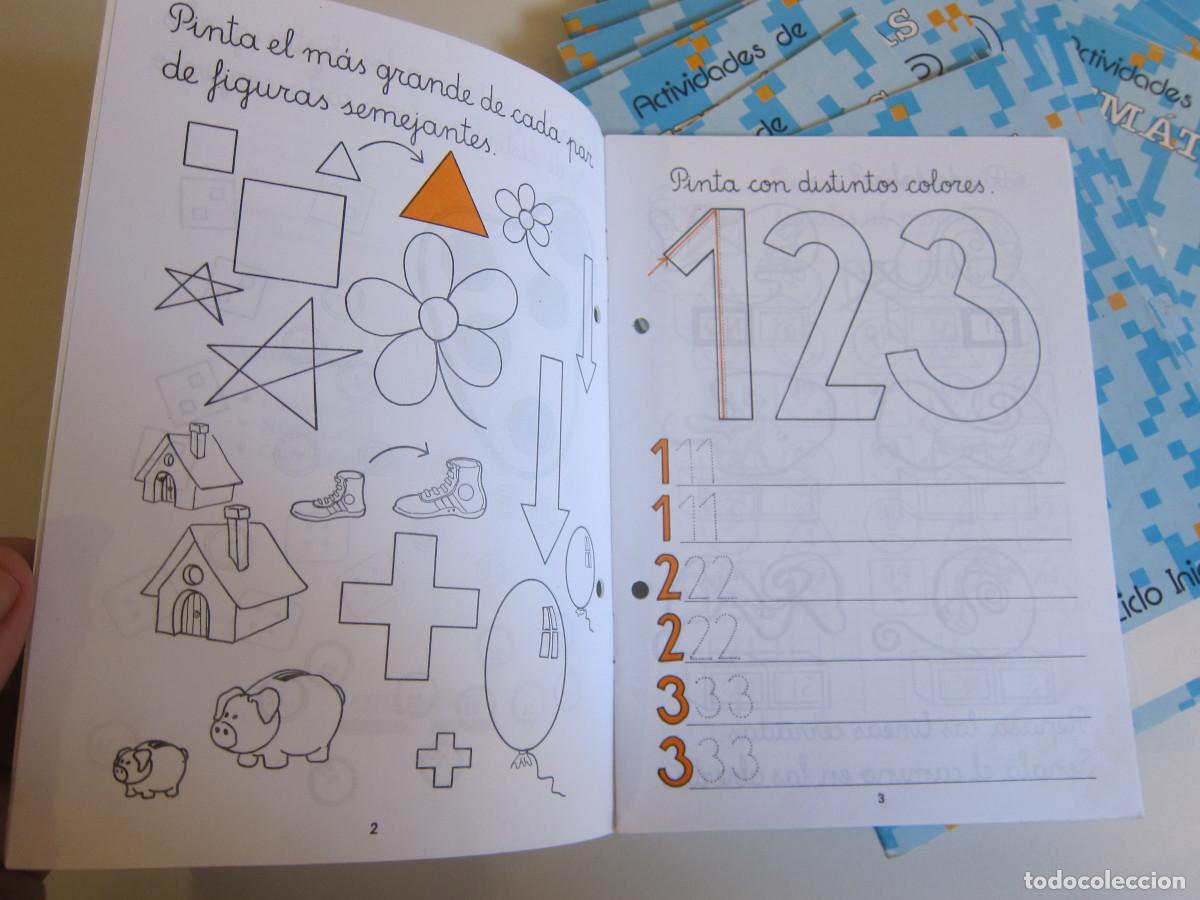 Pinta el más grande de cada par
de figuras semejantes.
2
Pinta con distintos colores.
123
1 11
1 11
2 22
2 22
3 33
3 33
3
Actividades de
de
Actividades
todocoleccion